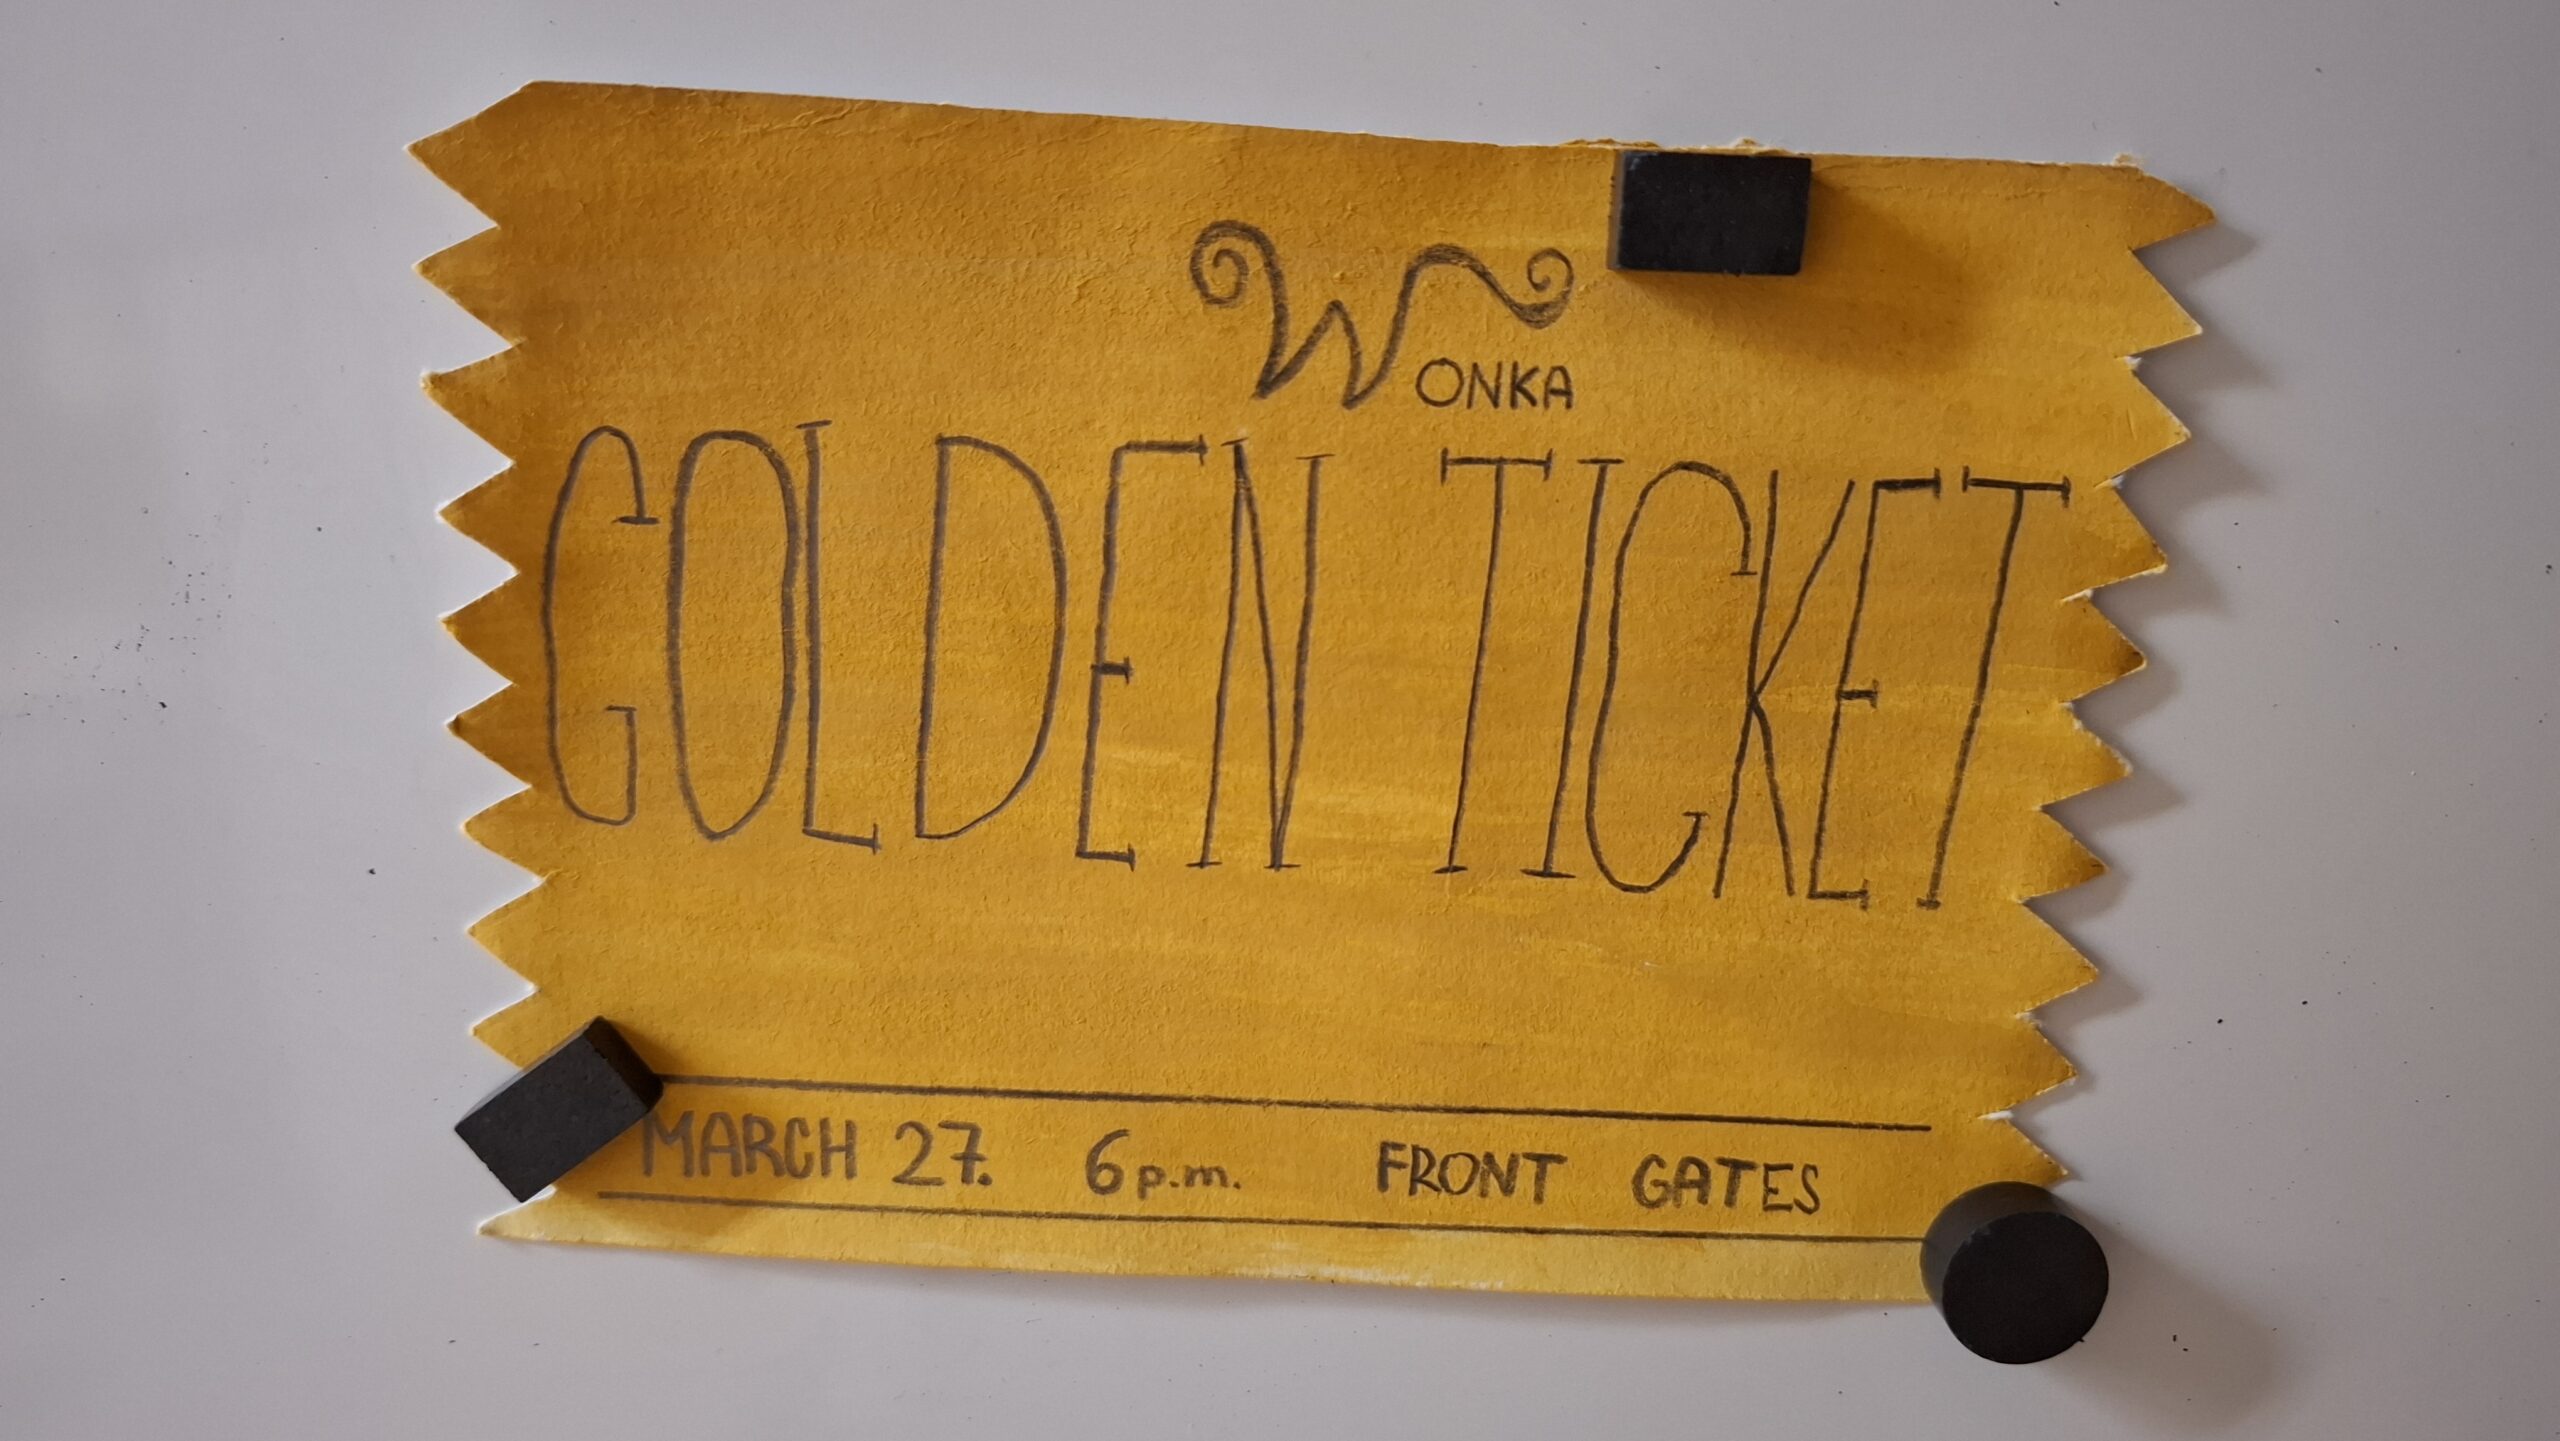 WONKA
GOLDEN TICKET
MARCH 27. 6 p.m. FRONT GATES